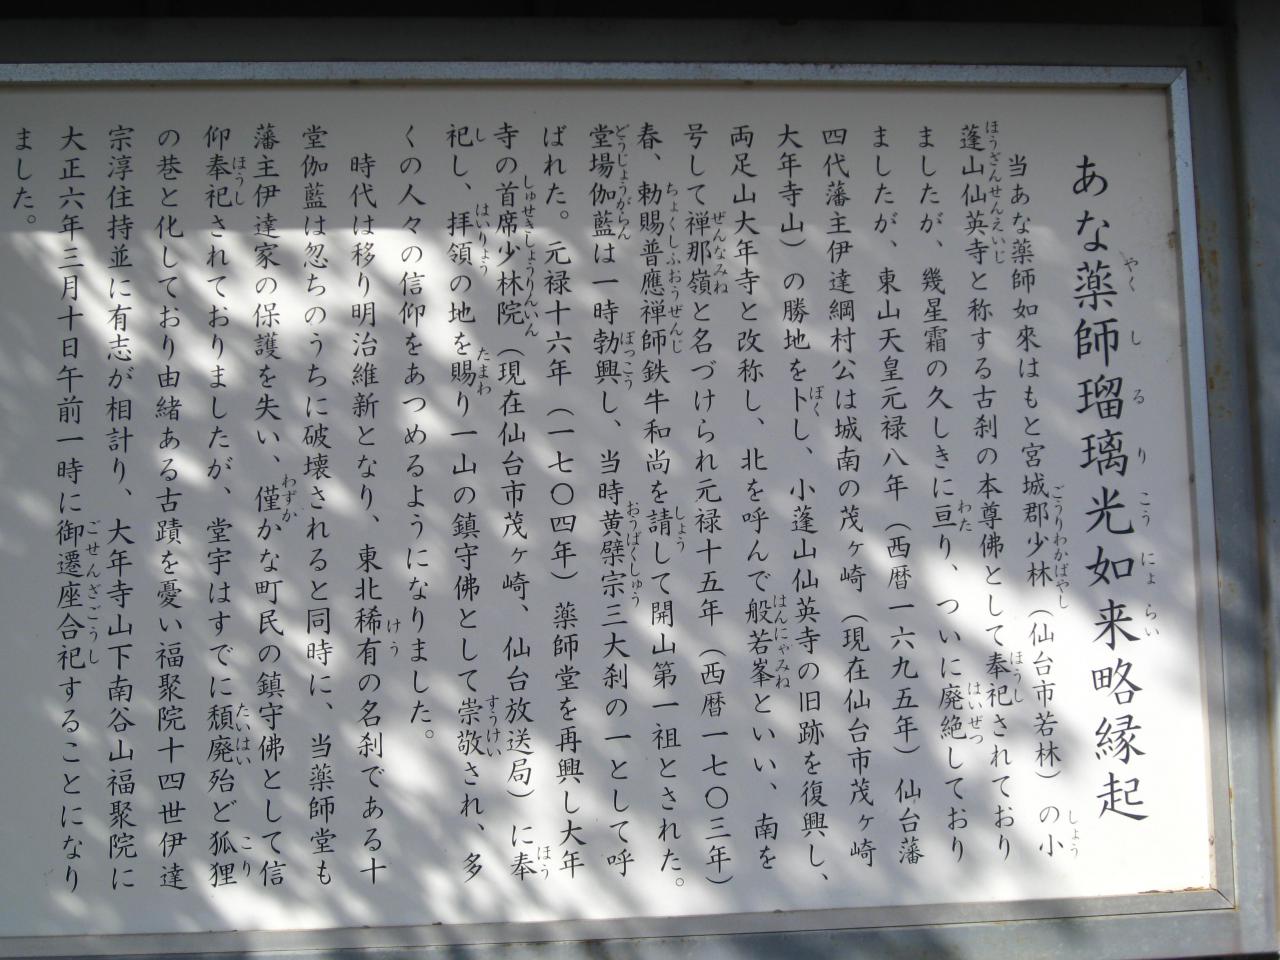 あな薬師瑠璃光如来略縁起
当あな薬師如來はもと宮城郡少林（仙台市若林）の小
蓬山仙英寺と称する古刹の本尊佛として奉祀されており
ましたが、幾星霜の久しきに亘り、ついに廃絶しており
ましたが、東山天皇元禄八年（西暦一六九五年）仙台藩
四代藩主伊達綱村公は城南の茂ヶ崎（現在仙台市茂ヶ崎
大年寺山）の勝地を卜し、小蓬山仙英寺の旧跡を復興し、
両足山大年寺と改称し、北を呼んで般若峯といい、南を
号して禅那嶺と名づけられ元禄十五年（西暦一七〇三年）
春、勅賜普應禅師鉄牛和尚を請して開山第一祖とされた。
堂場伽藍は一時勃興し、当時黄檗宗三大刹の一として呼
ばれた。元禄十六年（一七〇四年）薬師堂を再興し大年
寺の首席少林院（現在仙台市茂ヶ崎、仙台放送局）に奉
祀し、拝領の地を賜り一山の鎮守佛として崇敬され、多
くの人々の信仰をあつめるようになりました。
時代は移り明治維新となり、東北稀有の名刹である十
堂伽藍は忽ちのうちに破壊されると同時に、当薬師堂も
藩主伊達家の保護を失い、僅かな町民の鎮守佛として信
仰奉祀されておりましたが、堂宇はすでに頽廃殆ど狐狸
の巷と化しており由緒ある古蹟を憂い福聚院十四世伊達
宗淳住持並に有志が相計り、大年寺山下南谷山福聚院に
大正六年三月十日午前一時に御遷座合祀することになり
ました。